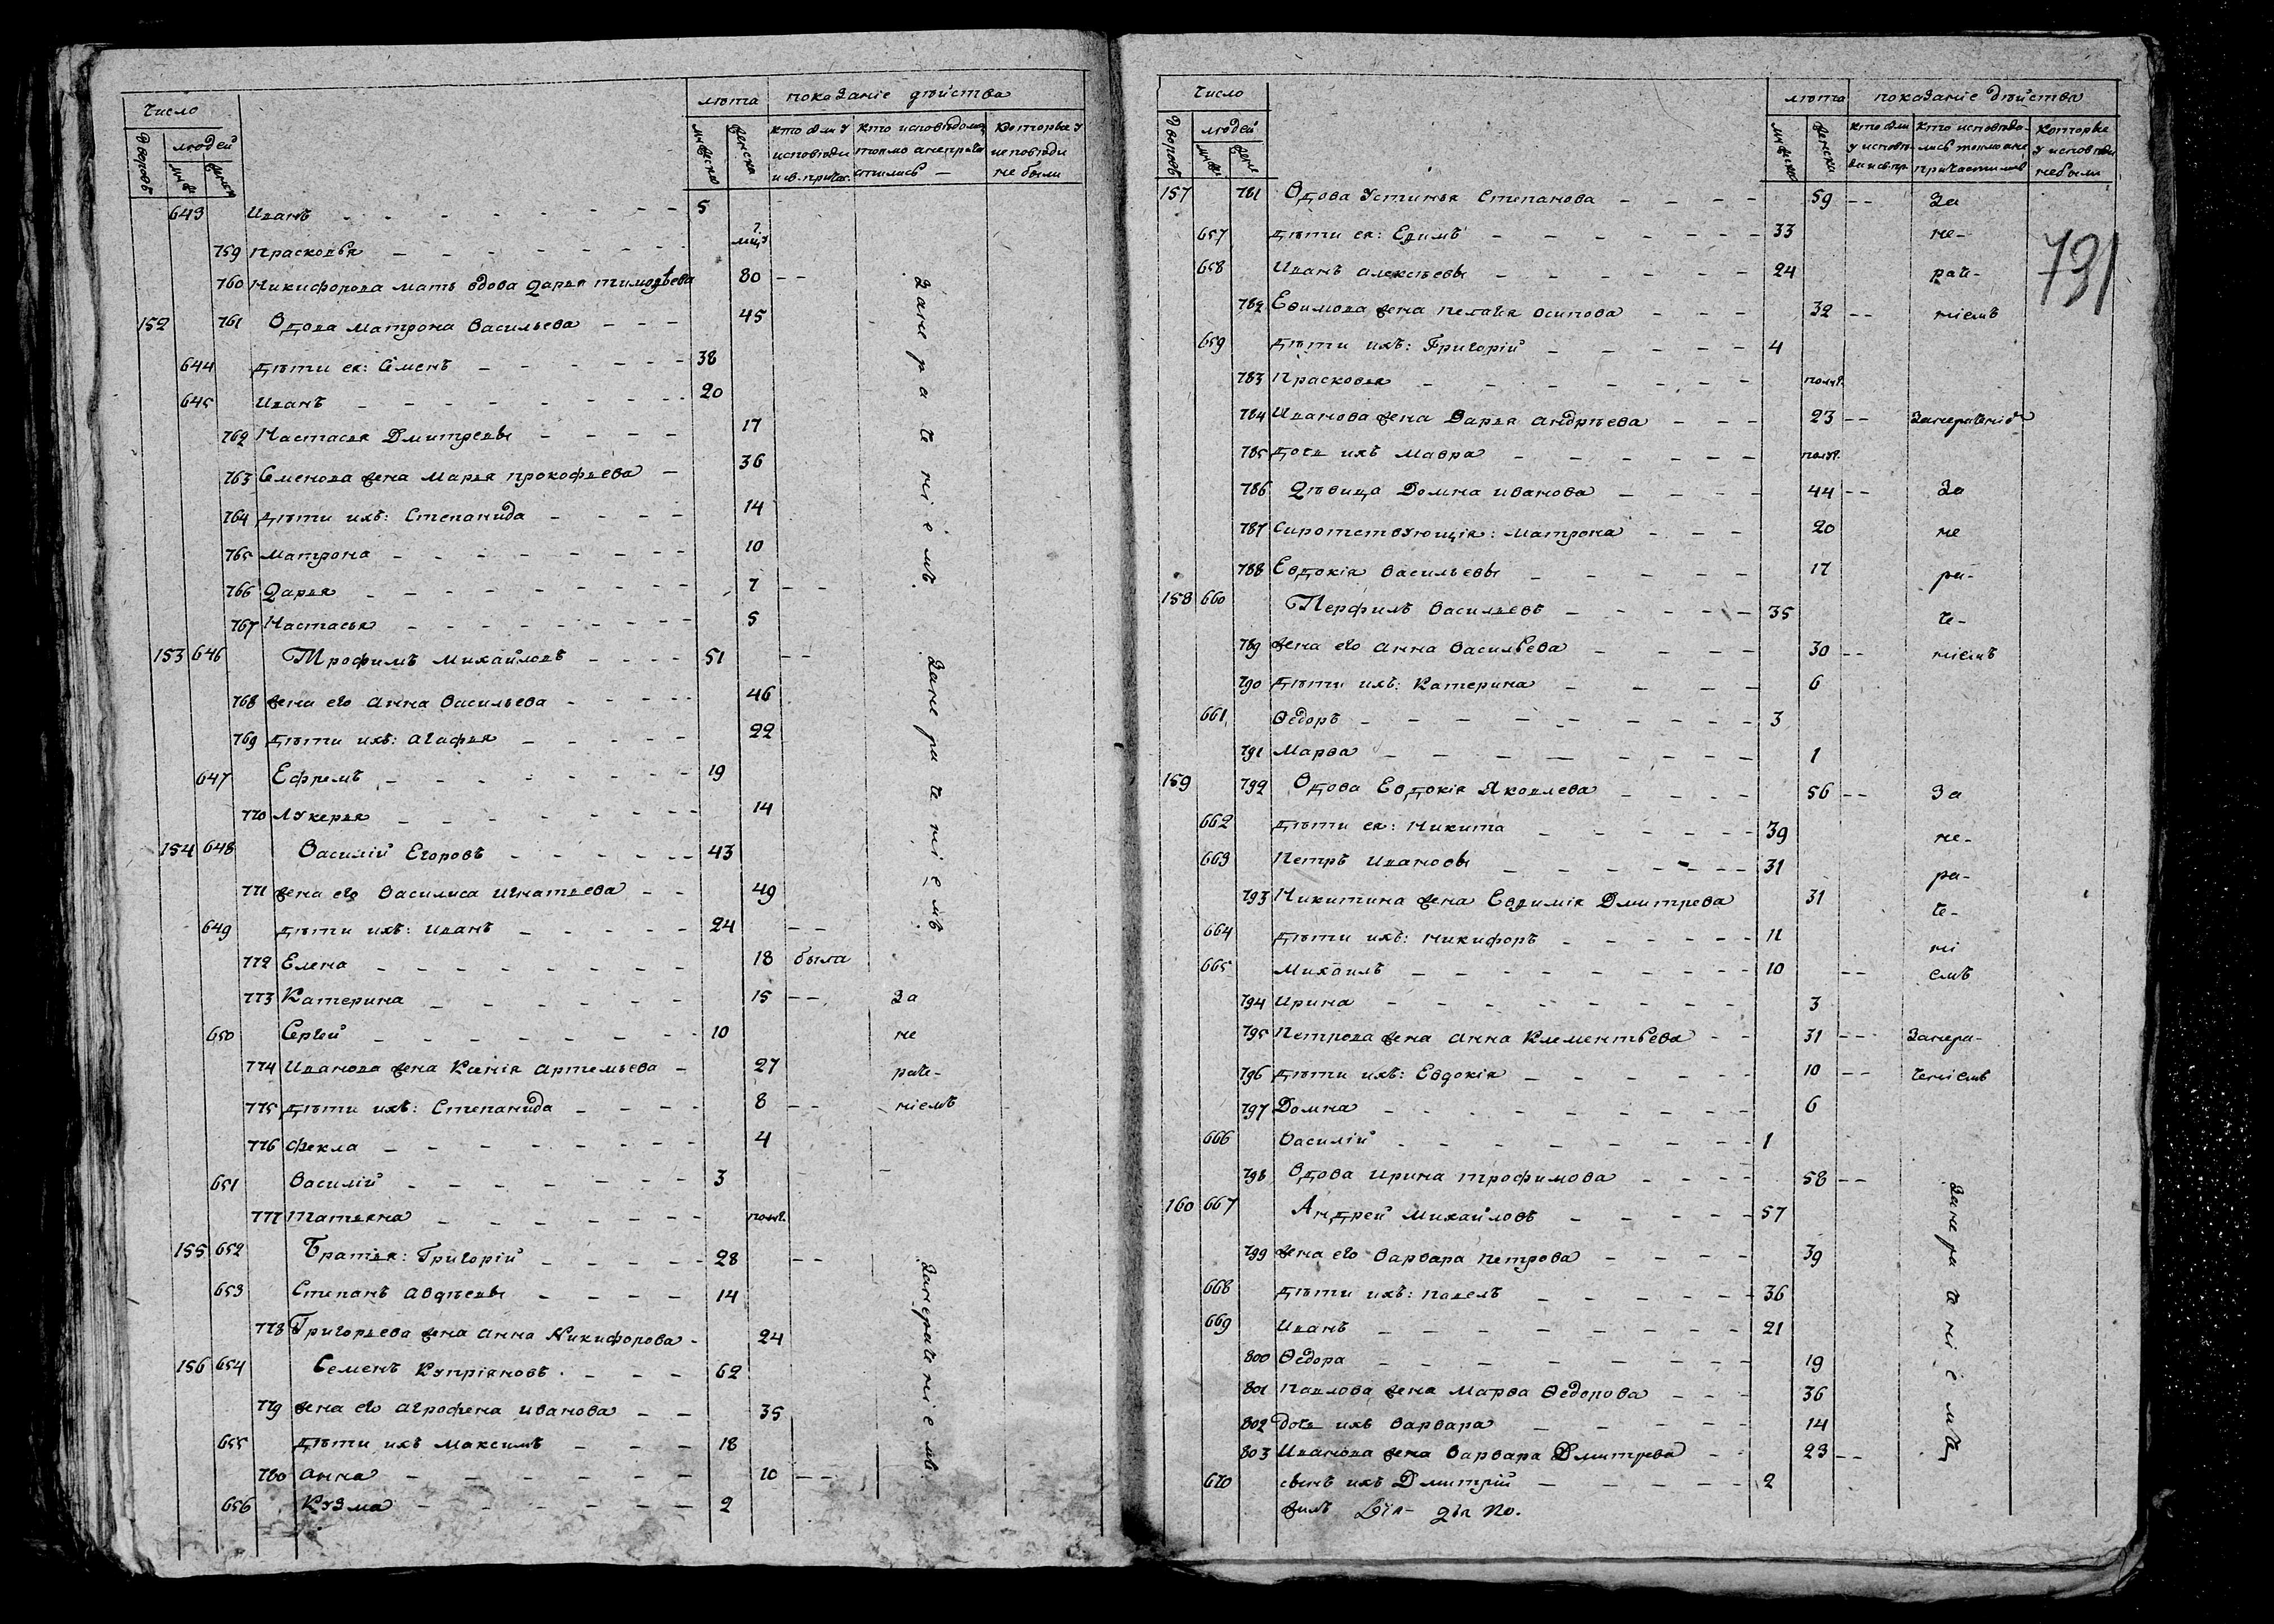 число
лѣта показанiе дѣйства
дворовъ людей мужеска женска кто были у исповѣди и св. причас. кто исповѣдолись токмо а непричастились — которые у исповѣди не были
муж. женск
643 Иванъ 5
759 Прасковья мцъ
760 Никифорова мать вдова Дарья Тимофѣева 80
152 761 Вдова Матрона Васильева 45
644 дѣти ея: Семенъ 38
645 Иванъ 20
762 Настасья Дмитревы 17
763 Семенова жена Марья Прокофьева 36
764 дѣти ихъ: Степанида 14
765 Матрона 10
766 Дарья 7
767 Настасья 5
За не ра че нi е мъ
153 646 Трофимъ Михайловъ 51
768 жена его Анна Васильева 46
769 дѣти ихъ: Агафья 22
647 Ефремъ 19
770 Лукерья 14
154 648 Василiй Егоровъ 43
771 жена его Василиса Игнатьева 49
649 дѣти ихъ: Иванъ 24
За не ра че нi е мъ
772 Елена 18 была
773 Катерина 15 За
650 Сергѣй 10 не
774 Иванова жена Ксенiя Артемьева 27 раче-
775 дѣти ихъ: Степанида 8 нiемъ
776 Фекла 4
651 Василiй 3
777 Татьяна полг.
155 652 Братья: Григорiй 28
653 Степанъ Авдѣевы 14
778 Григорьева жена Анна Никифорова 24
156 654 Семенъ Купрiяновъ 62
779 жена его Агрофена Иванова 35
655 дѣти ихъ Максимъ 18
780 Анна 10
656 Кузма 2
За не ра че нi е мъ
число
лѣта показанiе дѣйства
дворовъ людей муж. жен. мужеска женска кто были у исповѣди и св. пр. кто исповѣдолись токмо а не причастились которые у исповѣди небыли
731
157 781 Вдова Устинья Степанова 59 За
657 дѣти ея: Ефимъ 33 не-
658 Иванъ Алексѣевы 24 раче-
782 Ефимова жена Пелагiя Осипова 32 нiемъ
659 дѣти ихъ: Григорiй 4
783 Прасковья полг.
784 Иванова жена Дарья Андрѣева 23 Занераченiемъ
785 дочь ихъ Мавра полг.
786 Дѣвица Домна Иванова 44 За
787 Сиротствующiя: Матрона 20 не
788 Евдокiя Васильевы 17 ра-
158 660 Перфилъ Васильевъ 35 че-
789 жена его Анна Васильева 30 нiемъ
790 дѣти ихъ: Катерина 6
661 Ѳедоръ 3
791 Марфа 1
159 792 Вдова Евдокiя Яковлева 56 За
662 дѣти ея: Никита 39 не-
663 Петръ Ивановы 31 ра-
793 Никитина жена Евфимiя Дмитрева 31 че-
664 дѣти ихъ: Никифоръ 11 нi
665 Михаилъ 10 емъ
794 Ирина 3
795 Петрова жена Анна Клементьева 31 Занера-
796 дѣти ихъ: Евдокiя 10 ченiемъ
797 Домна 6
666 Василiй 1
798 Вдова Ирина Трофимова 58
160 667 Андрей Михайловъ 57
799 жена его Варвара Петрова 39
668 дѣти ихъ: Павелъ 36
669 Иванъ 21
800 Ѳедора 19
801 Павлова жена Марфа Ѳедорова 36
802 дочь ихъ Варвара 14
803 Иванова жена Варвара Дмитрева 23
670 сынъ ихъ Дмитрiй 2
За не ра че нi е мъ